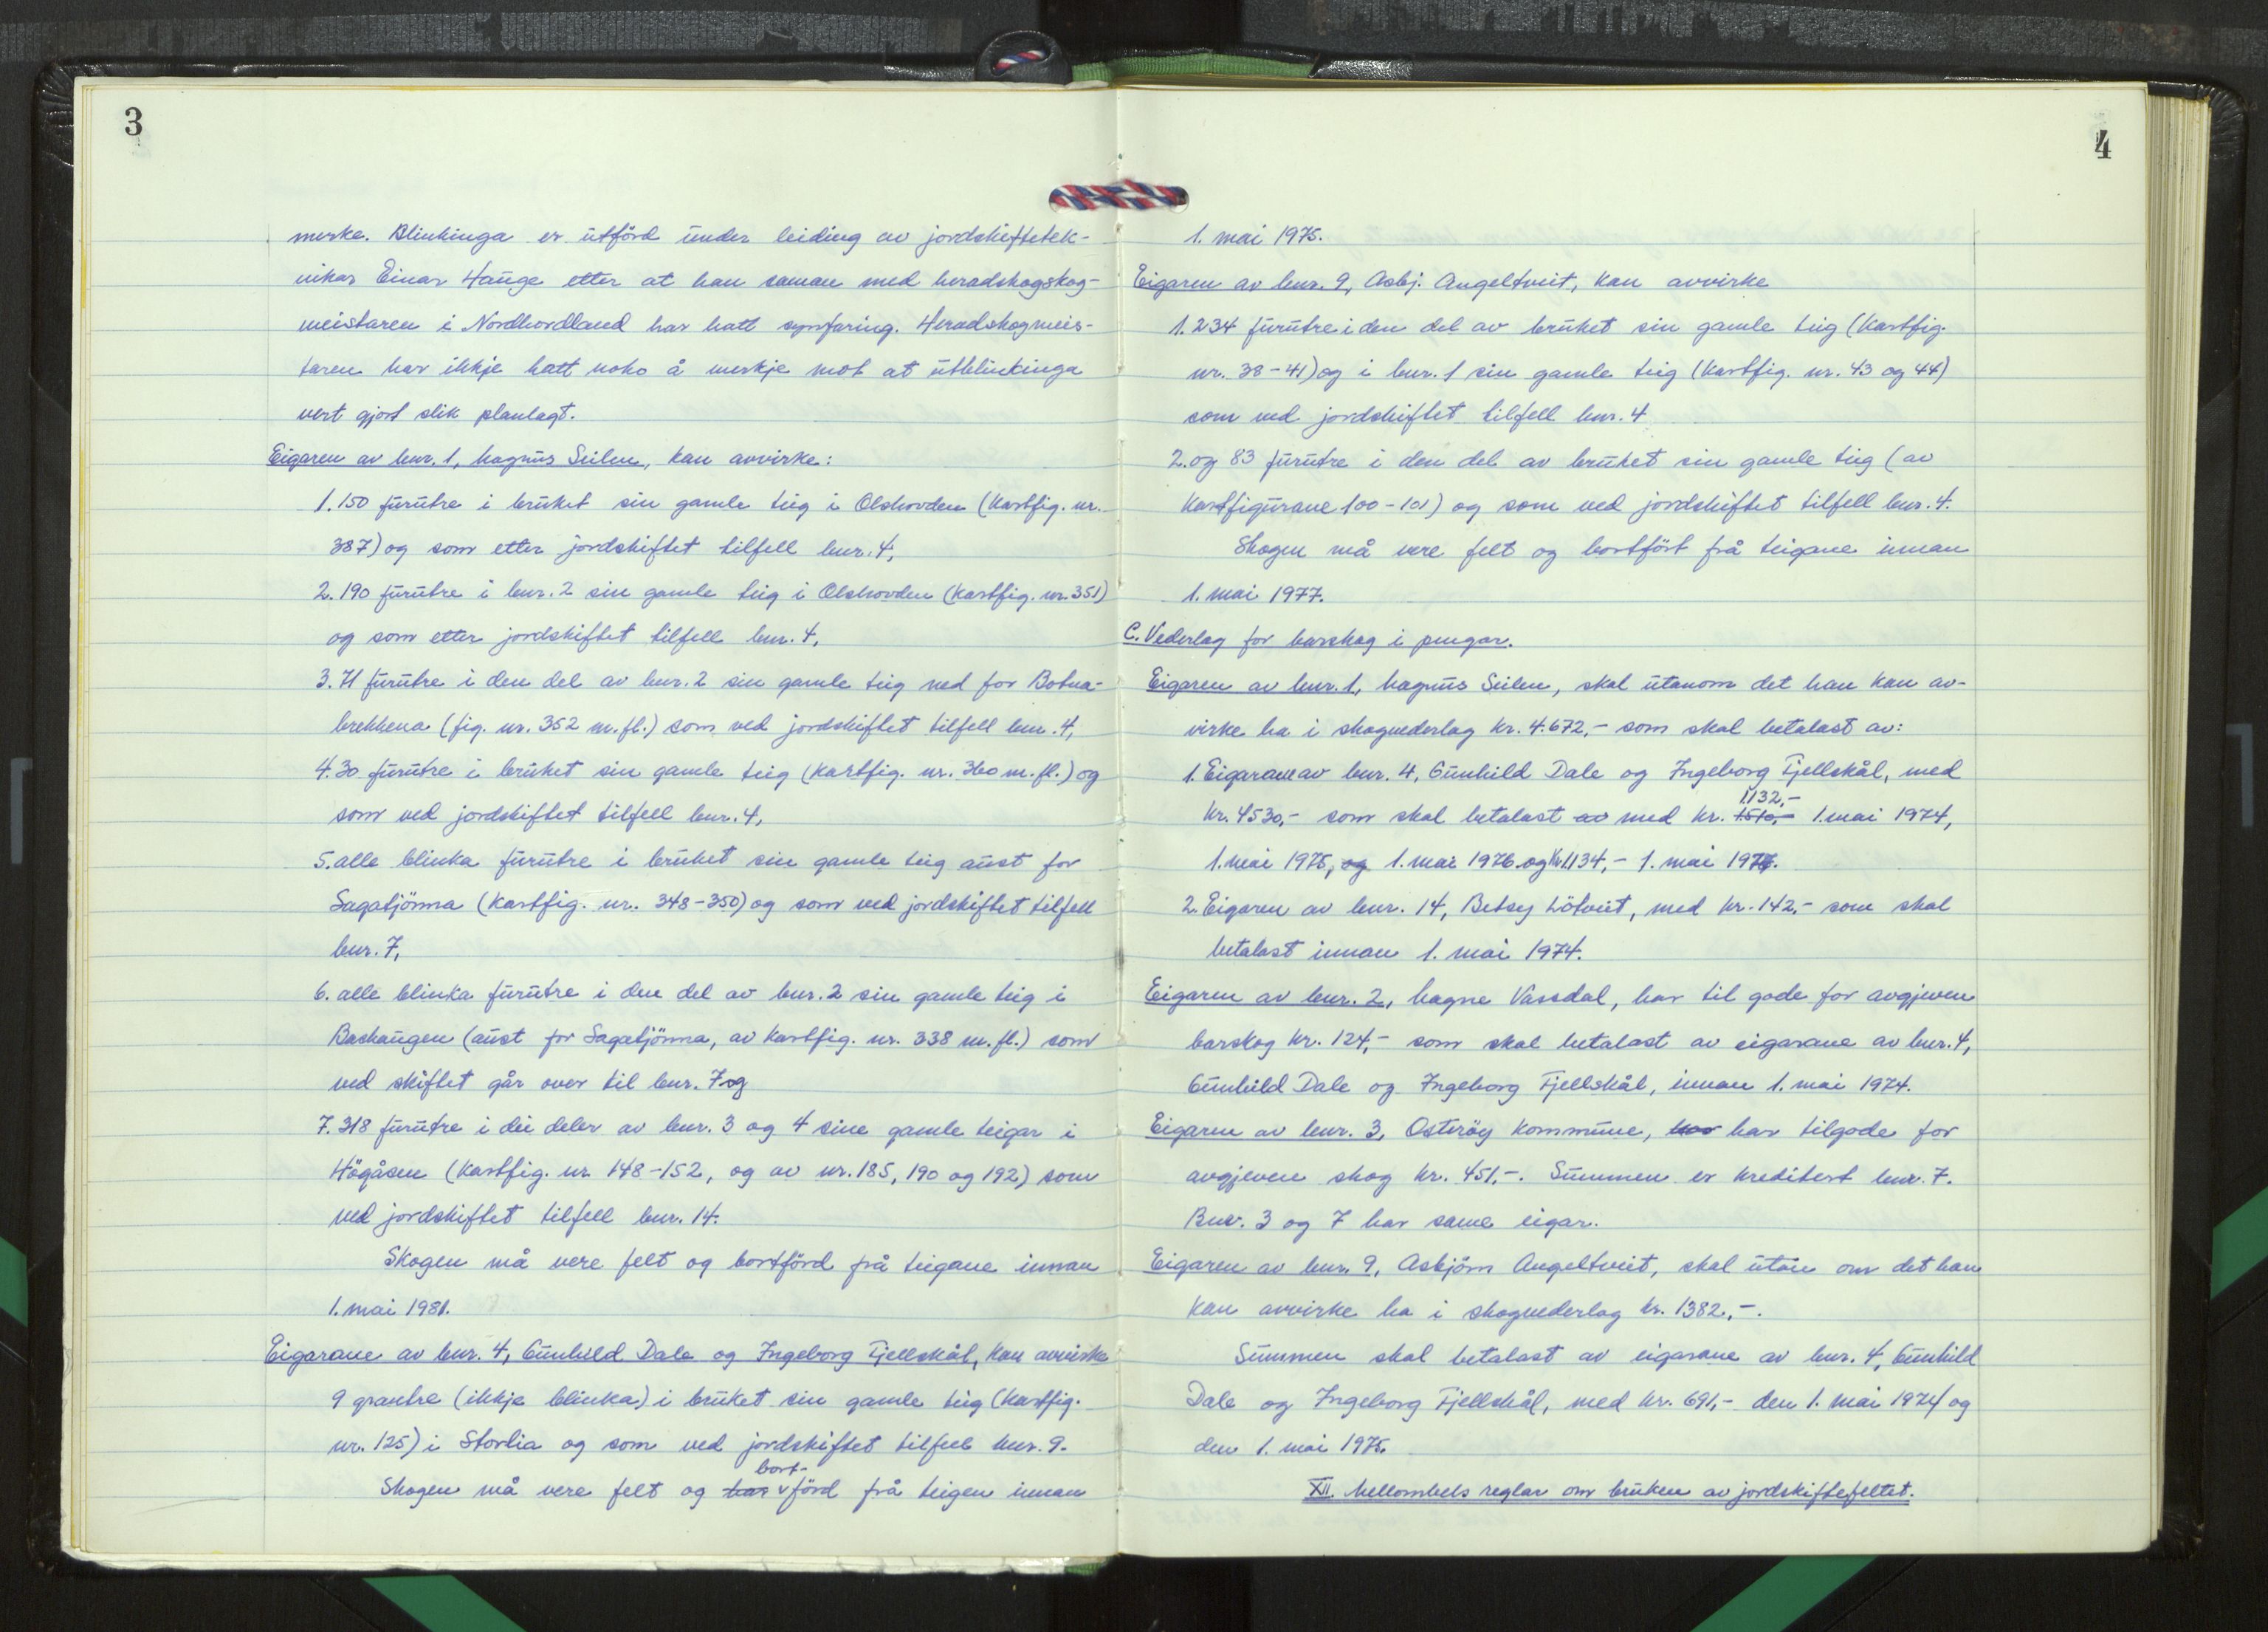 3
merke. Blinkinga er utförd under leiding av jordskiftetek-
nikar Einar Hauge etter at han saman med heradskogskog-
meistaren i Nordhordland har hatt synfaring. Heradskogmeis-
taren har ikkje hatt noko å merkje mot at utblinkinga
vert gjort slik planlagt.
Eigaren av bnr. 1, Magnus Seilen, kan avvirke:
1. 150 furutre i bruket sin gamle teig i Olshovden (Kartfig. nr.
387) og som etter jordskiftet tilfell bnr. 4,
2. 190 furutre i bnr. 2 sin gamle teig i Olshovden (Kartfig. nr. 351)
og som etter jordskiftet tilfell bnr. 4,
3. 71 furutre i den del av bnr. 2 sin gamle teig ned for Botna-
brekkena (fig. nr. 352 m.fl.) som ved jordskiftet tilfell bnr. 4,
4. 30 furutre i bruket sin gamle teig (Kartfig. nr. 360 m.fl.) og
som ved jordskiftet tilfell bnr. 4,
5. alle blinka furutre i bruket sin gamle teig aust for
Sagatjönna (Kartfig. nr. 348-350) og som ved jordskiftet tilfell
bnr. 7,
6. alle blinka furutre i den del av bnr. 2 sin gamle teig i
Bashaugen (aust for Sagatjönna, av Kartfig. nr. 338 m.fl.) som
ved skiftet går over til bnr. 7 og
7. 318 furutre i dei deler av bnr. 3 og 4 sine gamle teigar i
Högåsen (Kartfig. nr 148-152, og av nr. 185, 190 og 192) som
ved jordskiftet tilfell bnr. 14.
Skogen må vere felt og bortförd frå teigane innan
1. mai 1981.
Eigarane av bnr. 4, Gunhild Dale og Ingeborg Fjellskål, kan avvirke
9 grantre (ikkje blinka) i bruket sin gamle teig (Kartfig.
nr. 125) i Storlia og som ved jordskiftet tilfell bnr. 9.
Skogen må vere felt og bort-förd frå teigen innan
4
1. mai 1975.
Eigaren av bnr. 9, Asbj. Angeltveit, kan avvirke
1. 234 furutre i den del av bruket sin gamle teig (Kartfig.
nr. 38-41) og i bnr. 1 sin gamle teig (Kartfig. nr. 43 og 44)
som ved jordskiftet tilfell bnr. 4
2. og 83 furutre i den del av bruket sin gamle teig (av
Kartfigurane 100-101) og som ved jordskiftet tilfell bnr. 4.
Skogen må vere felt og bortfört frå teigane innan
1. mai 1977.
C. Vederlag for barskog i pengar.
Eigaren av bnr. 1, Magnus Seilen, skal utanom det han kan av-
virke ha i skogvederlag kr. 4.672,- som skal betalast av:
1. Eigarane av bnr. 4, Gunhild Dale og Ingeborg Fjellskål, med
kr. 4530,- som skal betalast av med kr. 1510,- 1132,- 1. mai 1974,
1. mai 1975, og 1. mai 1976 og kr 1134,- 1. mai 1977.
2. Eigaren av bnr. 14, Betsy Lötveit, med kr. 142,- som skal
betalast innan 1. mai 1974.
Eigaren av bnr. 2, Magne Vassdal, har til gode for avgjeven
barskog kr. 124,- som skal betalast av eigarane av bnr. 4,
Gunhild Dale og Ingeborg Fjellskål, innan 1. mai 1974.
Eigaren av bnr. 3, Osteröy Kommune, har har tilgode for
avgjeven skog kr. 451,-. Summen er kreditert bnr. 7.
Bnr. 3 og 7 har same eigar.
Eigaren av bnr. 9, Asbjörn Angeltveit, skal utan om det han
kan avvirke ha i skogvederlag kr. 1382,-.
Summen skal betalast av eigarane av bnr. 4, Gunhild
Dale og Ingeborg Fjellskål, med kr. 691,- den 1. mai 1974 og
den 1. mai 1975.
XII. Mellombels reglar om bruken av jordskiftefeltet.